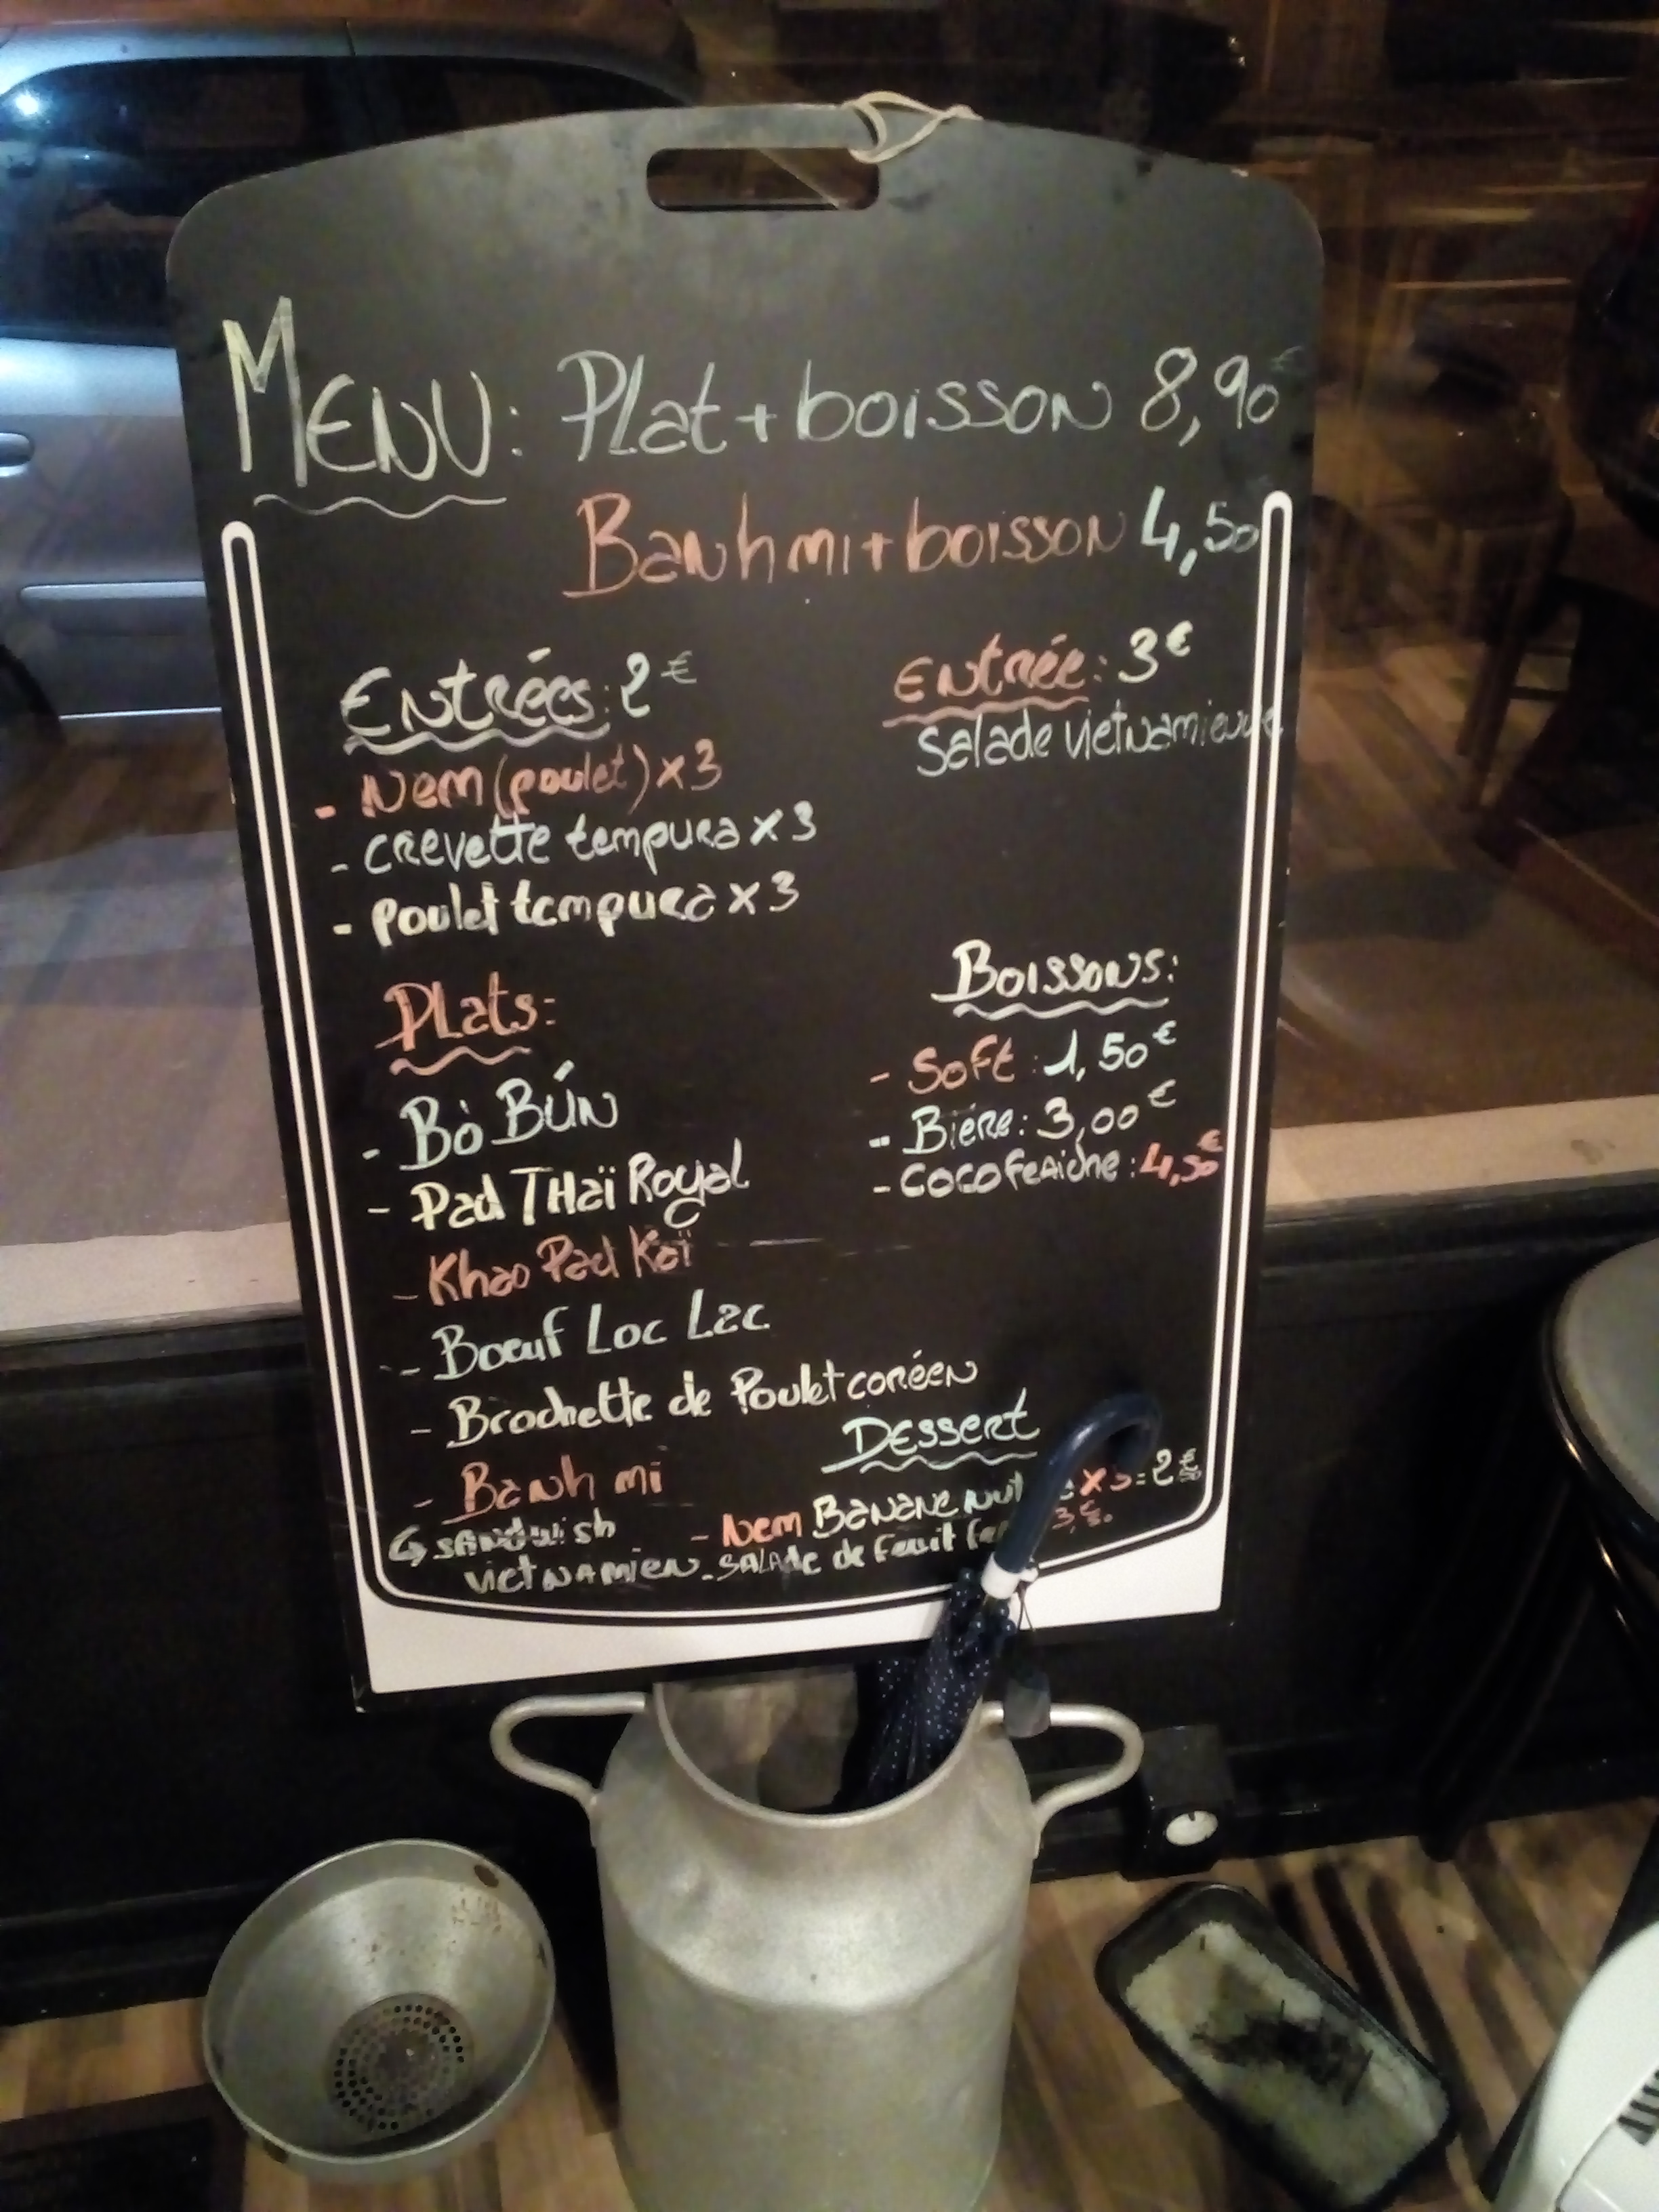 MENU: Plat + boisson 8,90€
Banh mi + boisson 4,50
Entrées: 2€
- Nem (poulet) x 3
- crevette tempura x 3
- poulet tempura x 3
Entrée: 3€
salade vietnamienne
Plats:
- Bò BÚN
- Pad THaï Royal
- Khao Pad Kaï
- Boeuf Loc Lac
- Brochette de Poulet coréen
- Banh mi
↳ sandwish
vietnamien
Boissons:
- Soft : 1,50€
- Bière: 3,00€
- coco fraiche : 4,50€
Dessert
- Nem BANANE x 3 = 2€
- SALADE de fruit